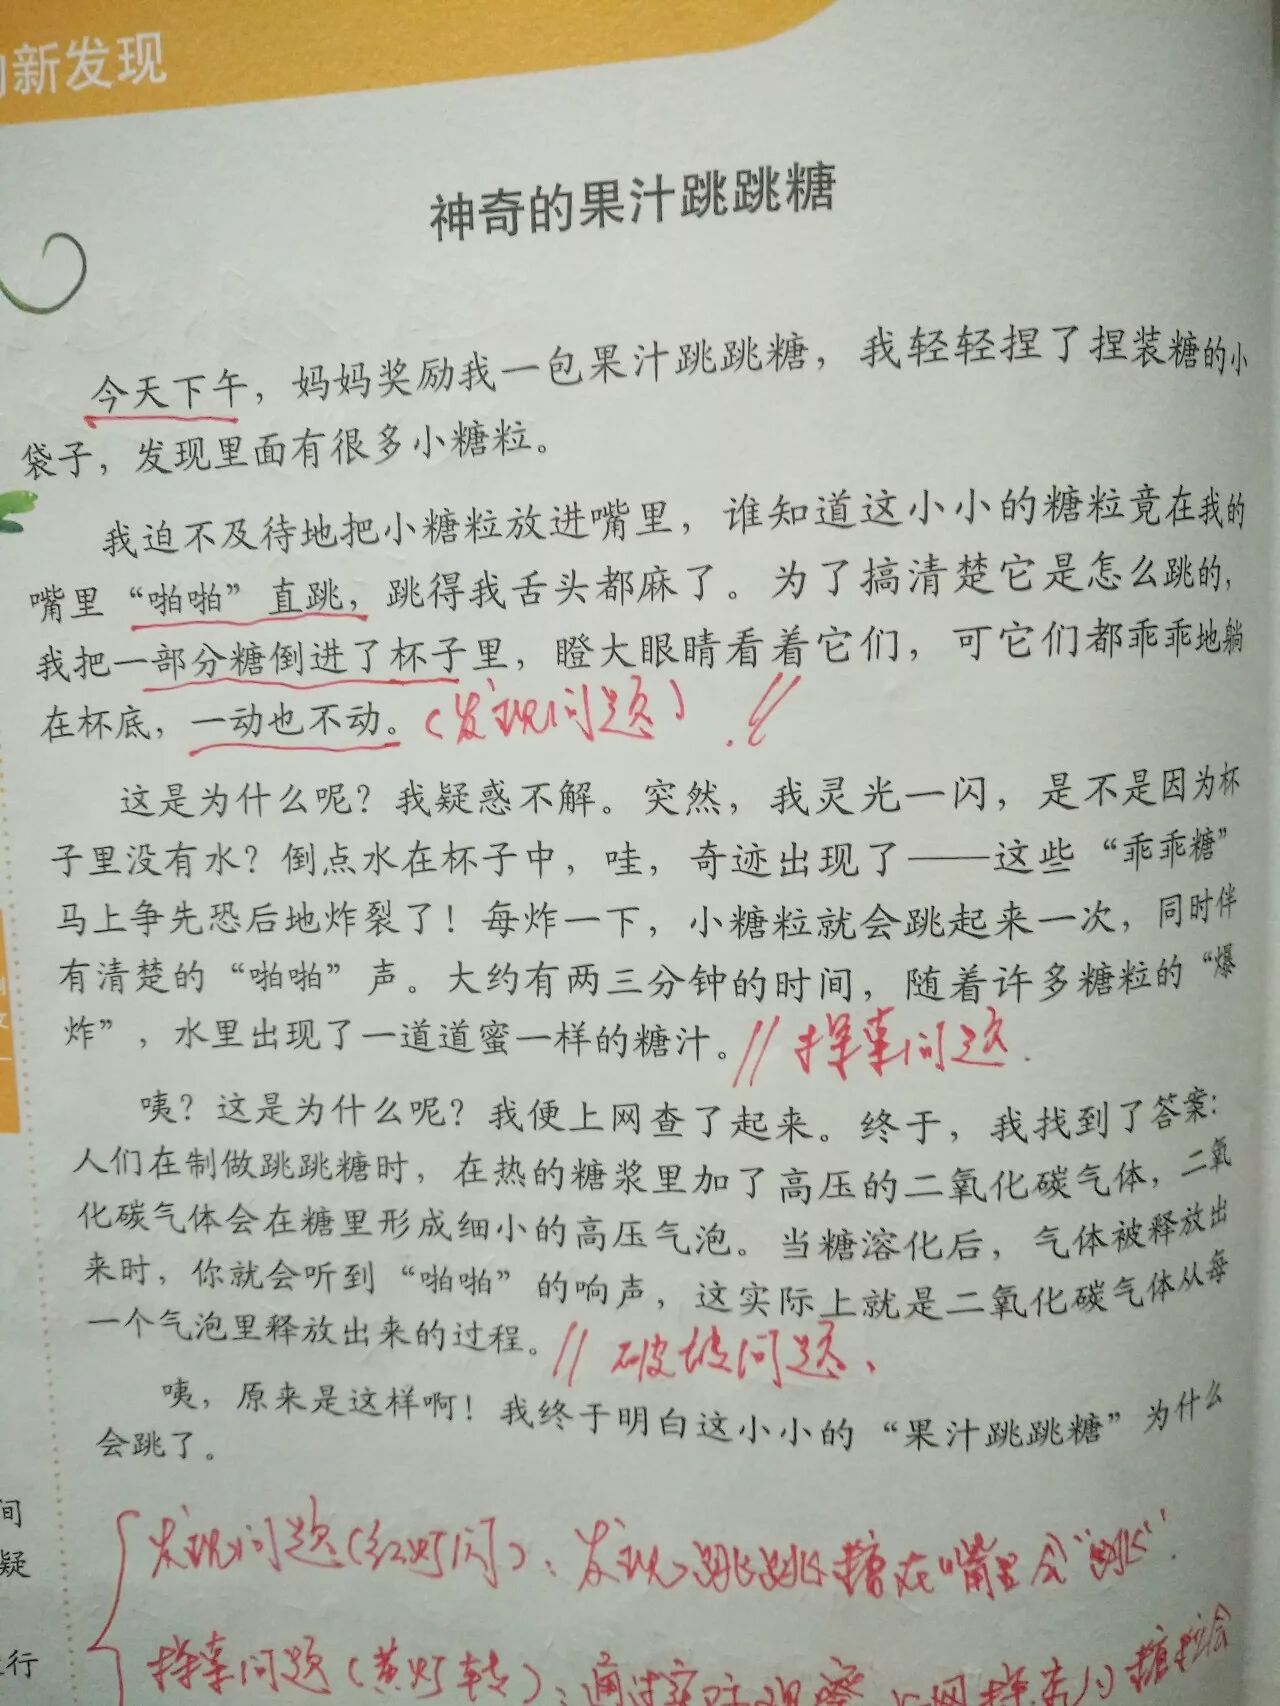 新发现
神奇的果汁跳跳糖
今天下午，妈妈奖励我一包果汁跳跳糖，我轻轻捏了捏装糖的小
袋子，发现里面有很多小糖粒。
我迫不及待地把小糖粒放进嘴里，谁知道这小小的糖粒竟在我的
嘴里“啪啪”直跳，跳得我舌头都麻了。为了搞清楚它是怎么跳的，
我把一部分糖倒进了杯子里，瞪大眼睛看着它们，可它们都乖乖地躺
在杯底，一动也不动。（发现问题）
这是为什么呢？我疑惑不解。突然，我灵光一闪，是不是因为杯
子里没有水？倒点水在杯子中，哇，奇迹出现了——这些“乖乖糖”
马上争先恐后地炸裂了！每炸一下，小糖粒就会跳起来一次，同时伴
有清楚的“啪啪”声。大约有两三分钟的时间，随着许多糖粒的“爆
炸”，水里出现了一道道蜜一样的糖汁。// 探索问题.
咦？这是为什么呢？我便上网查了起来。终于，我找到了答案：
人们在制做跳跳糖时，在热的糖浆里加了高压的二氧化碳气体，二氧
化碳气体会在糖里形成细小的高压气泡。当糖溶化后，气体被释放出
来时，你就会听到“啪啪”的响声，这实际上就是二氧化碳气体从每
一个气泡里释放出来的过程。// 破坡问题、
咦，原来是这样啊！我终于明白这小小的“果汁跳跳糖”为什么
会跳了。
间
疑
行
发现问题（红灯闪）：发现跳跳糖在嘴里会“跳”.
探索问题（黄灯转）：通过实际观察